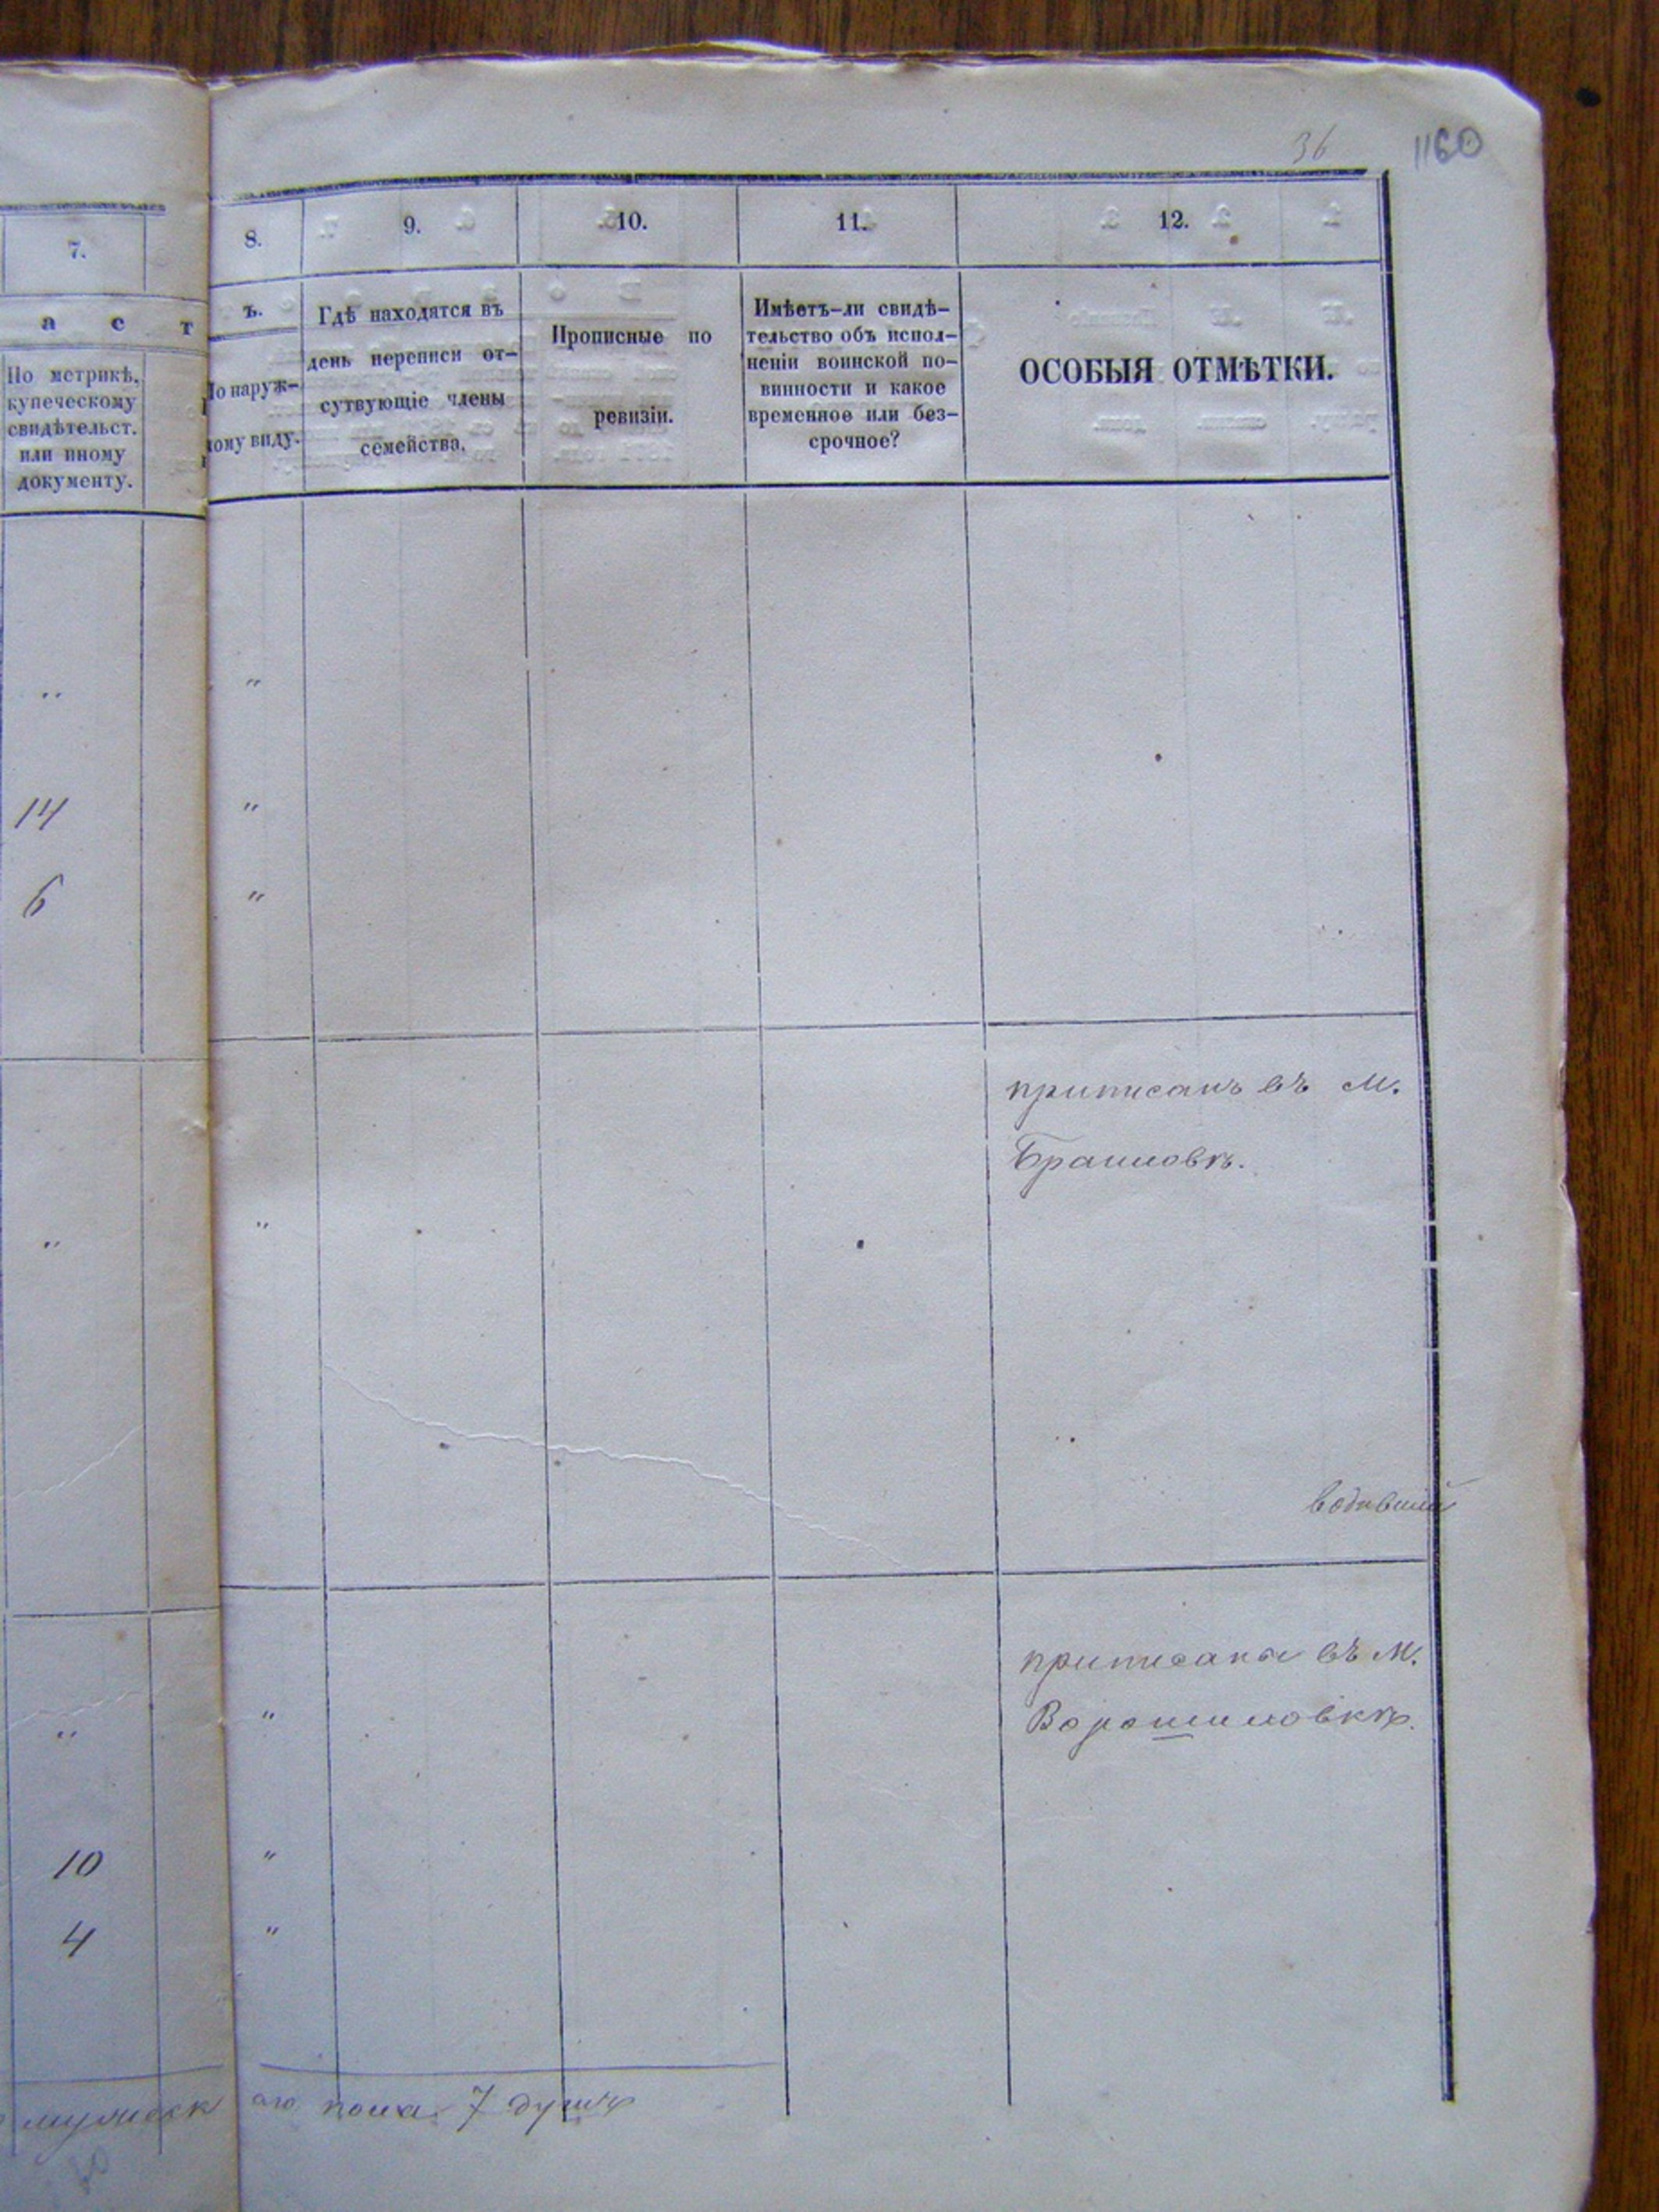 36 1160
7.
8. 9. 10. 11. 12.
а с т
ъ.
По метрикѣ,
купеческому
свидѣтельст.
или иному
документу.
По наруж-
ному виду.
Гдѣ находятся въ
день переписи от-
сутвующіе члены
семейства.
Прописные по
ревизіи.
Имѣетъ-ли свидѣ-
тельство объ испол-
неніи воинской по-
винности и какое
временное или без-
срочное?
ОСОБЫЯ ОТМѢТКИ.
„ „
14 „
6 „
приписанъ въ м.
Браиловъ.
„ „
приписаны въ м.
Ворошиловкѣ.
„ „
10 „
4 „
мужеск ого пола 7 душъ